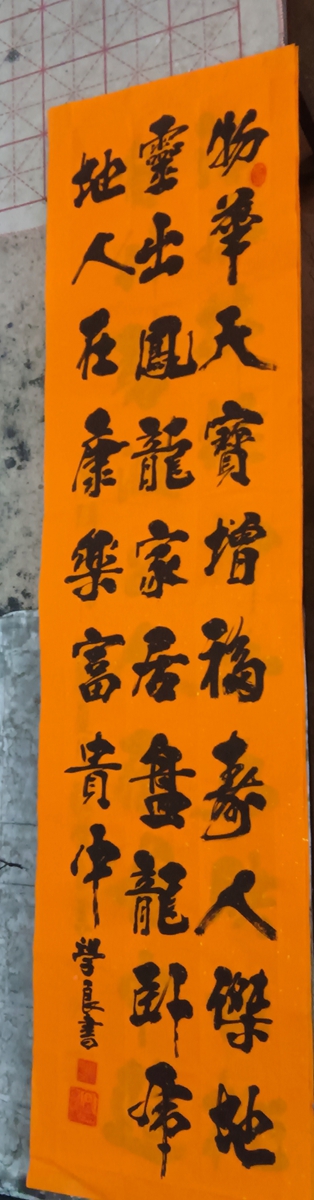 物華天寳增福壽人傑地
靈出鳳龍家居盘龍卧虎
地人在康樂富貴中
學良書